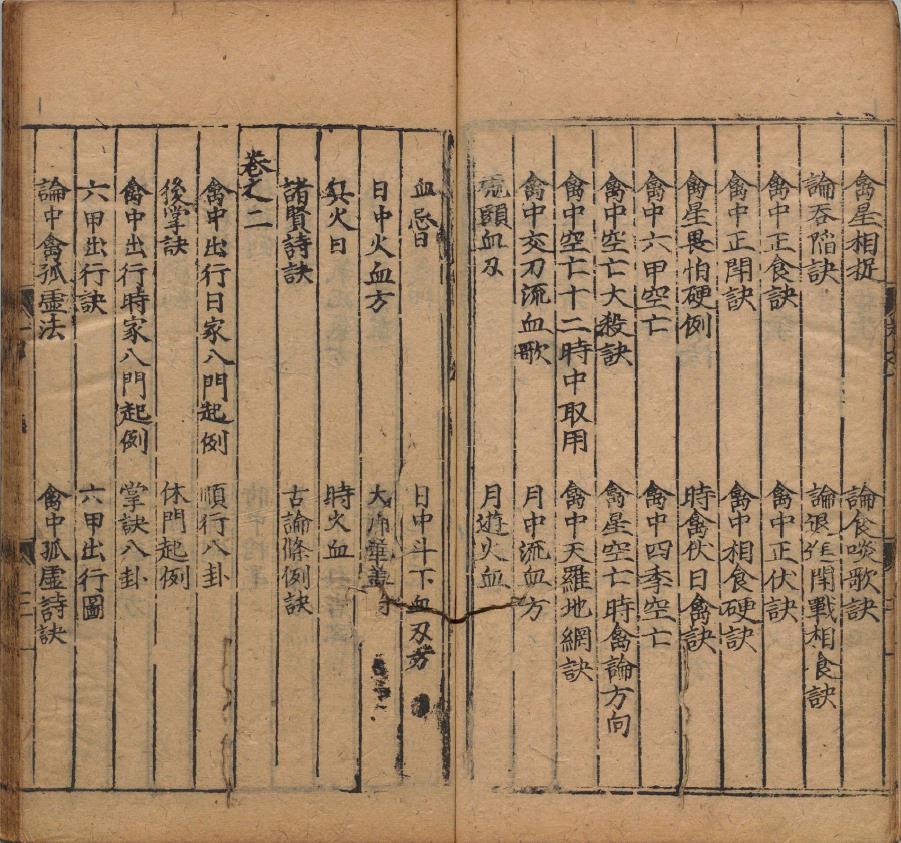 禽星相捉　論食啖歌訣
論吞陷訣　論退作鬦戰相食訣
禽中正食訣　禽中正伏訣
禽中正鬦訣　禽中相食硬訣
禽星畏怕硬例　時禽伏日禽訣
禽中六甲空亡　禽中四季空亡
禽中空亡大殺訣　禽星空亡時禽論方向
禽中空亡十二時中取用　禽中天羅地網訣
禽中交刀流血歌　月中流血方
頭血刃　月遊火血
血忌日　日中斗下血刃方
日中火血方　大
火日　時火血
諸賢詩訣　古論條例訣
卷之二
禽中出行日家八門起例　順行八卦
後掌訣　休門起例
禽中出行時家八門起例　掌訣八卦
六甲出行訣　六甲出行圖
論中禽孤虛法　禽中孤虛詩訣